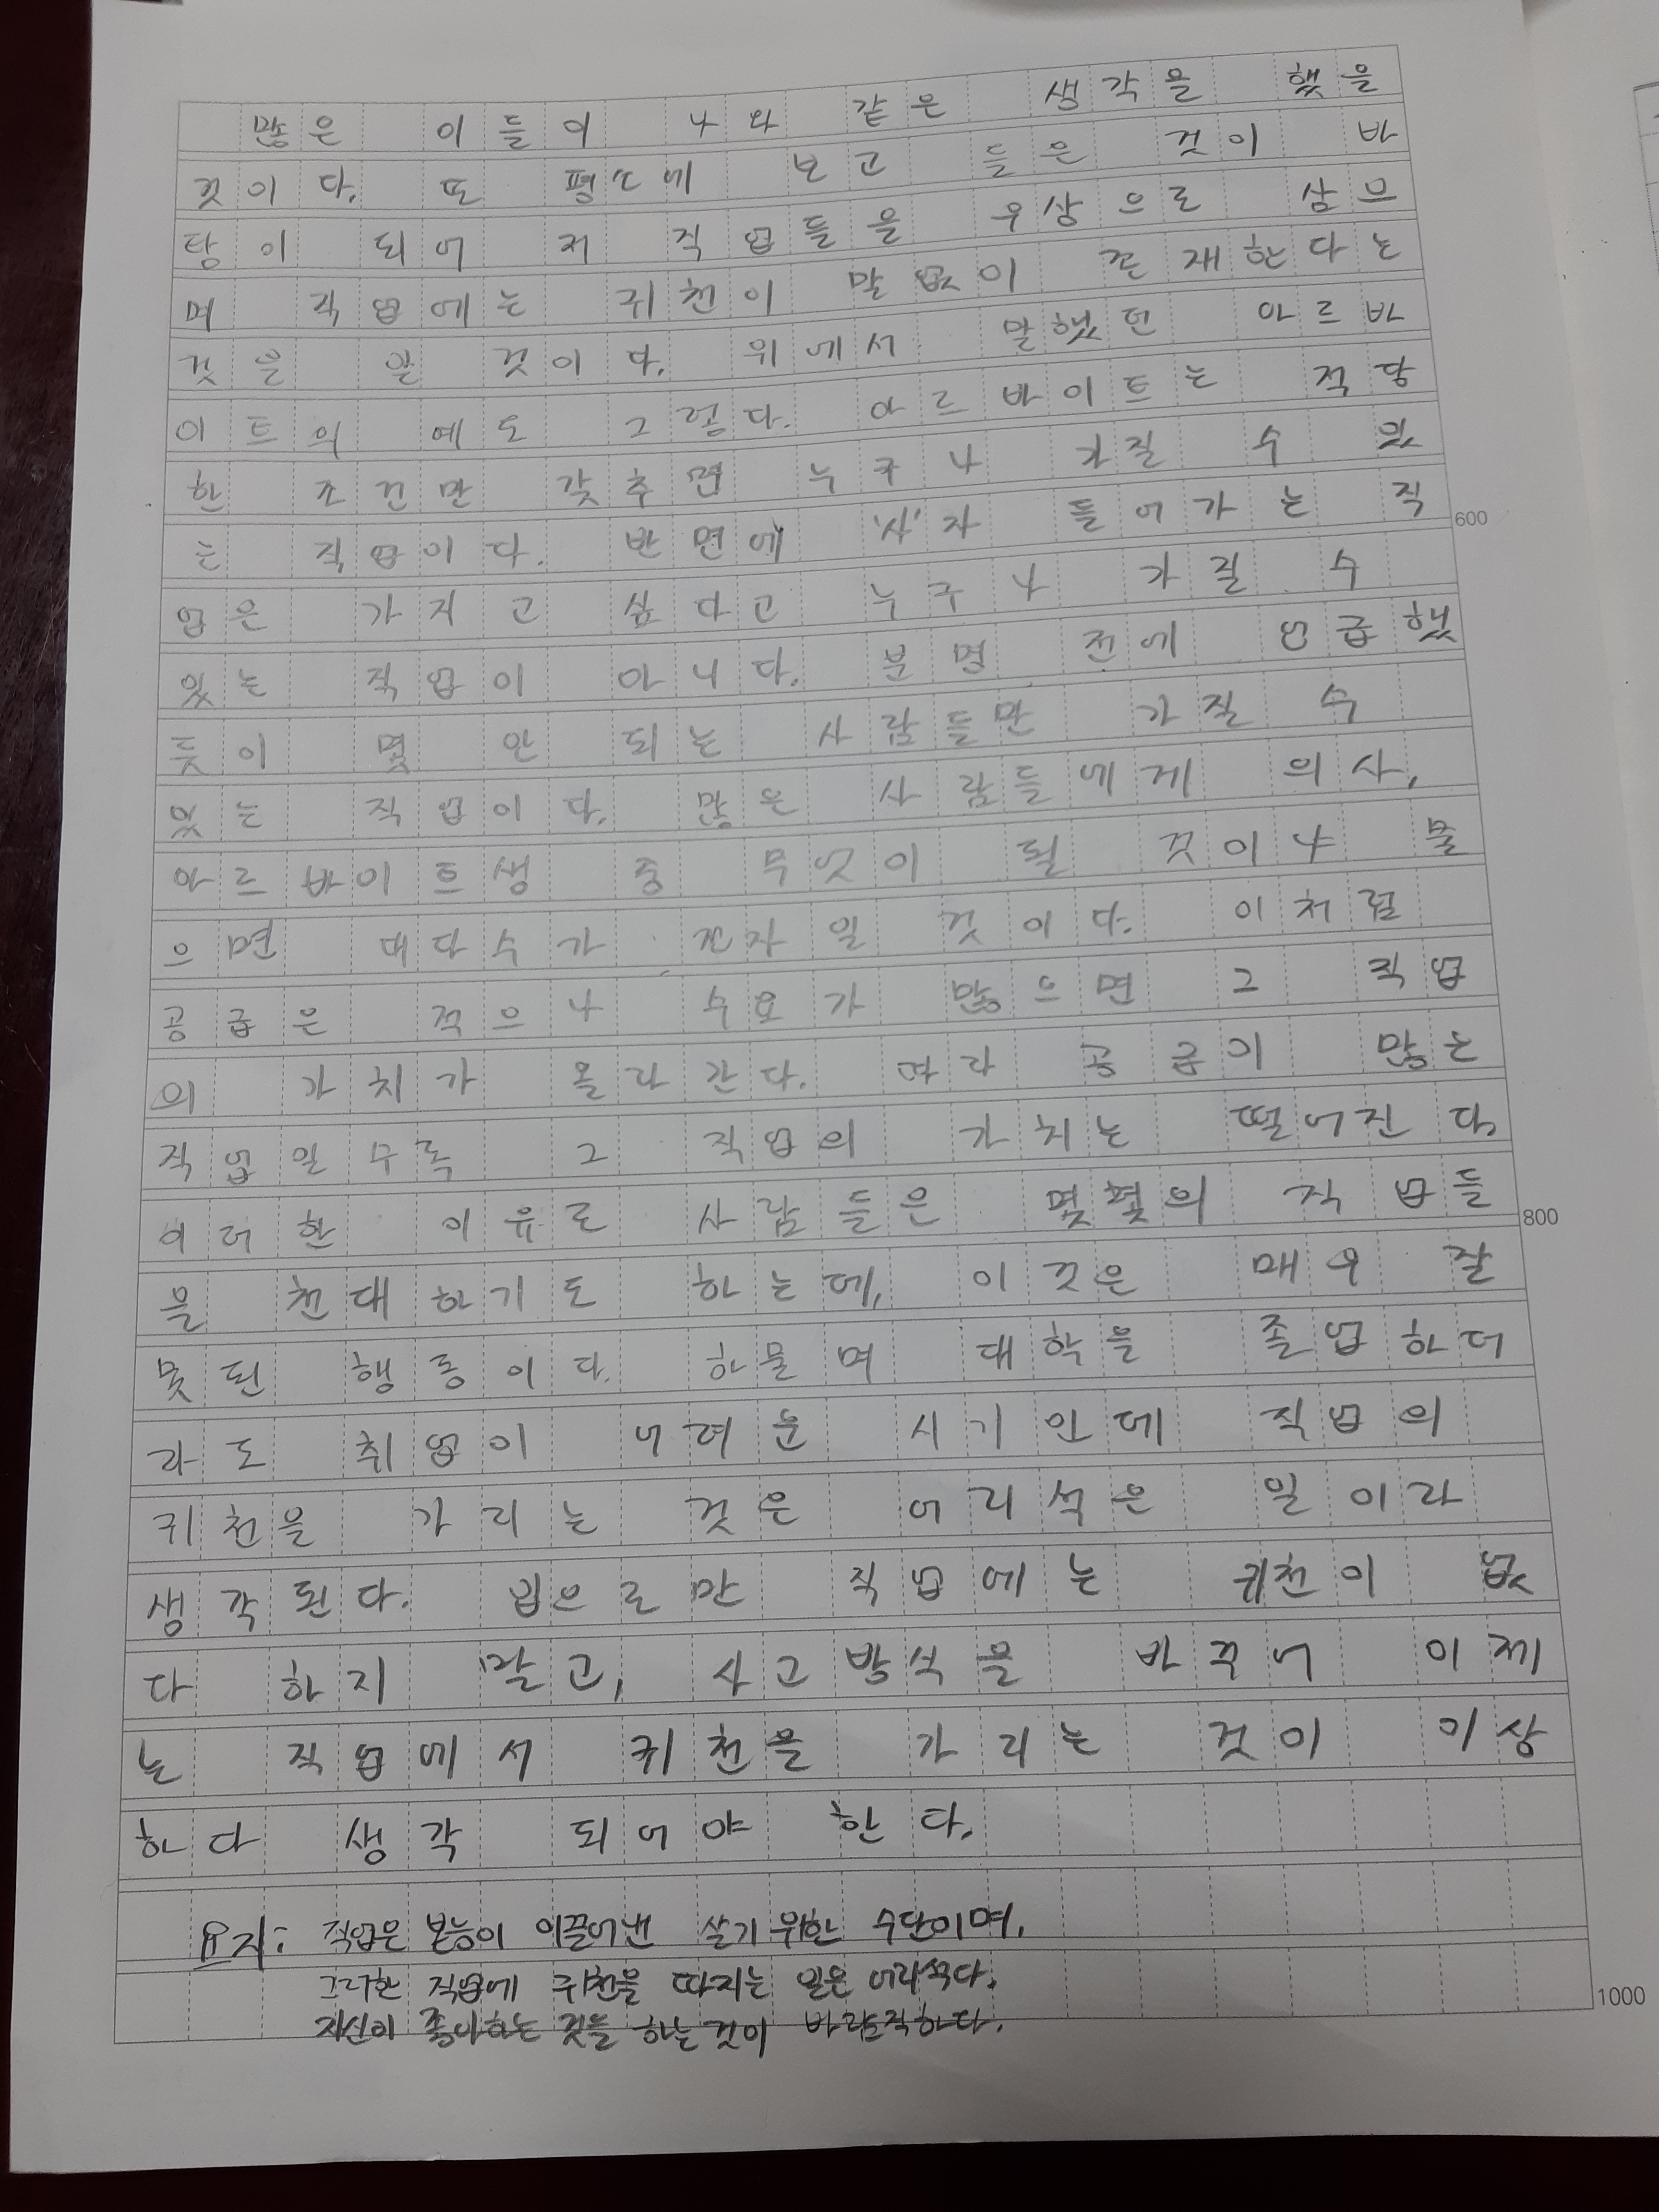 많은 이들이 나와 같은 생각을 했을
것이다. 또 평소에 보고 들은 것이 바
탕이 되어 저 직업들을 우상으로 삼으
며 직업에는 귀천이 말없이 존재한다는
것을 알 것이다. 위에서 말했던 아르바
이트의 예도 그렇다. 아르바이트는 적당
한 조건만 갖추면 누구나 가질 수 있
는 직업이다. 반면에 '사'자 들어가는 직
600
업은 가지고 싶다고 누구나 가질 수
있는 직업이 아니다. 분명 전에 언급했
듯이 몇 안 되는 사람들만 가질 수
있는 직업이다. 많은 사람들에게 의사,
아르바이트생 중 무엇이 될 것이냐 물
으면 대다수가 전자일 것이다. 이처럼
공급은 적으나 수요가 많으면 그 직업
의 가치가 올라간다. 따라 공급이 많은
직업일수록 그 직업의 가치는 떨어진다.
이러한 이유로 사람들은 몇몇의 직업들
800
을 천대하기도 하는데, 이것은 매우 잘
못된 행동이다. 하물며 대학을 졸업하더
라도 취업이 어려운 시기인데 직업의
귀천을 가리는 것은 어리석은 일이라
생각된다. 입으로만 직업에는 귀천이 없
다 하지 말고, 사고방식을 바꾸어 이제
는 직업에서 귀천을 가리는 것이 이상
하다 생각 되어야 한다.
요지: 직업은 본능이 이끌어낸 살기 위한 수단이며,
그러한 직업에 귀천을 따지는 일은 어리석다.
자신이 좋아하는 것을 하는 것이 바람직하다.
1000